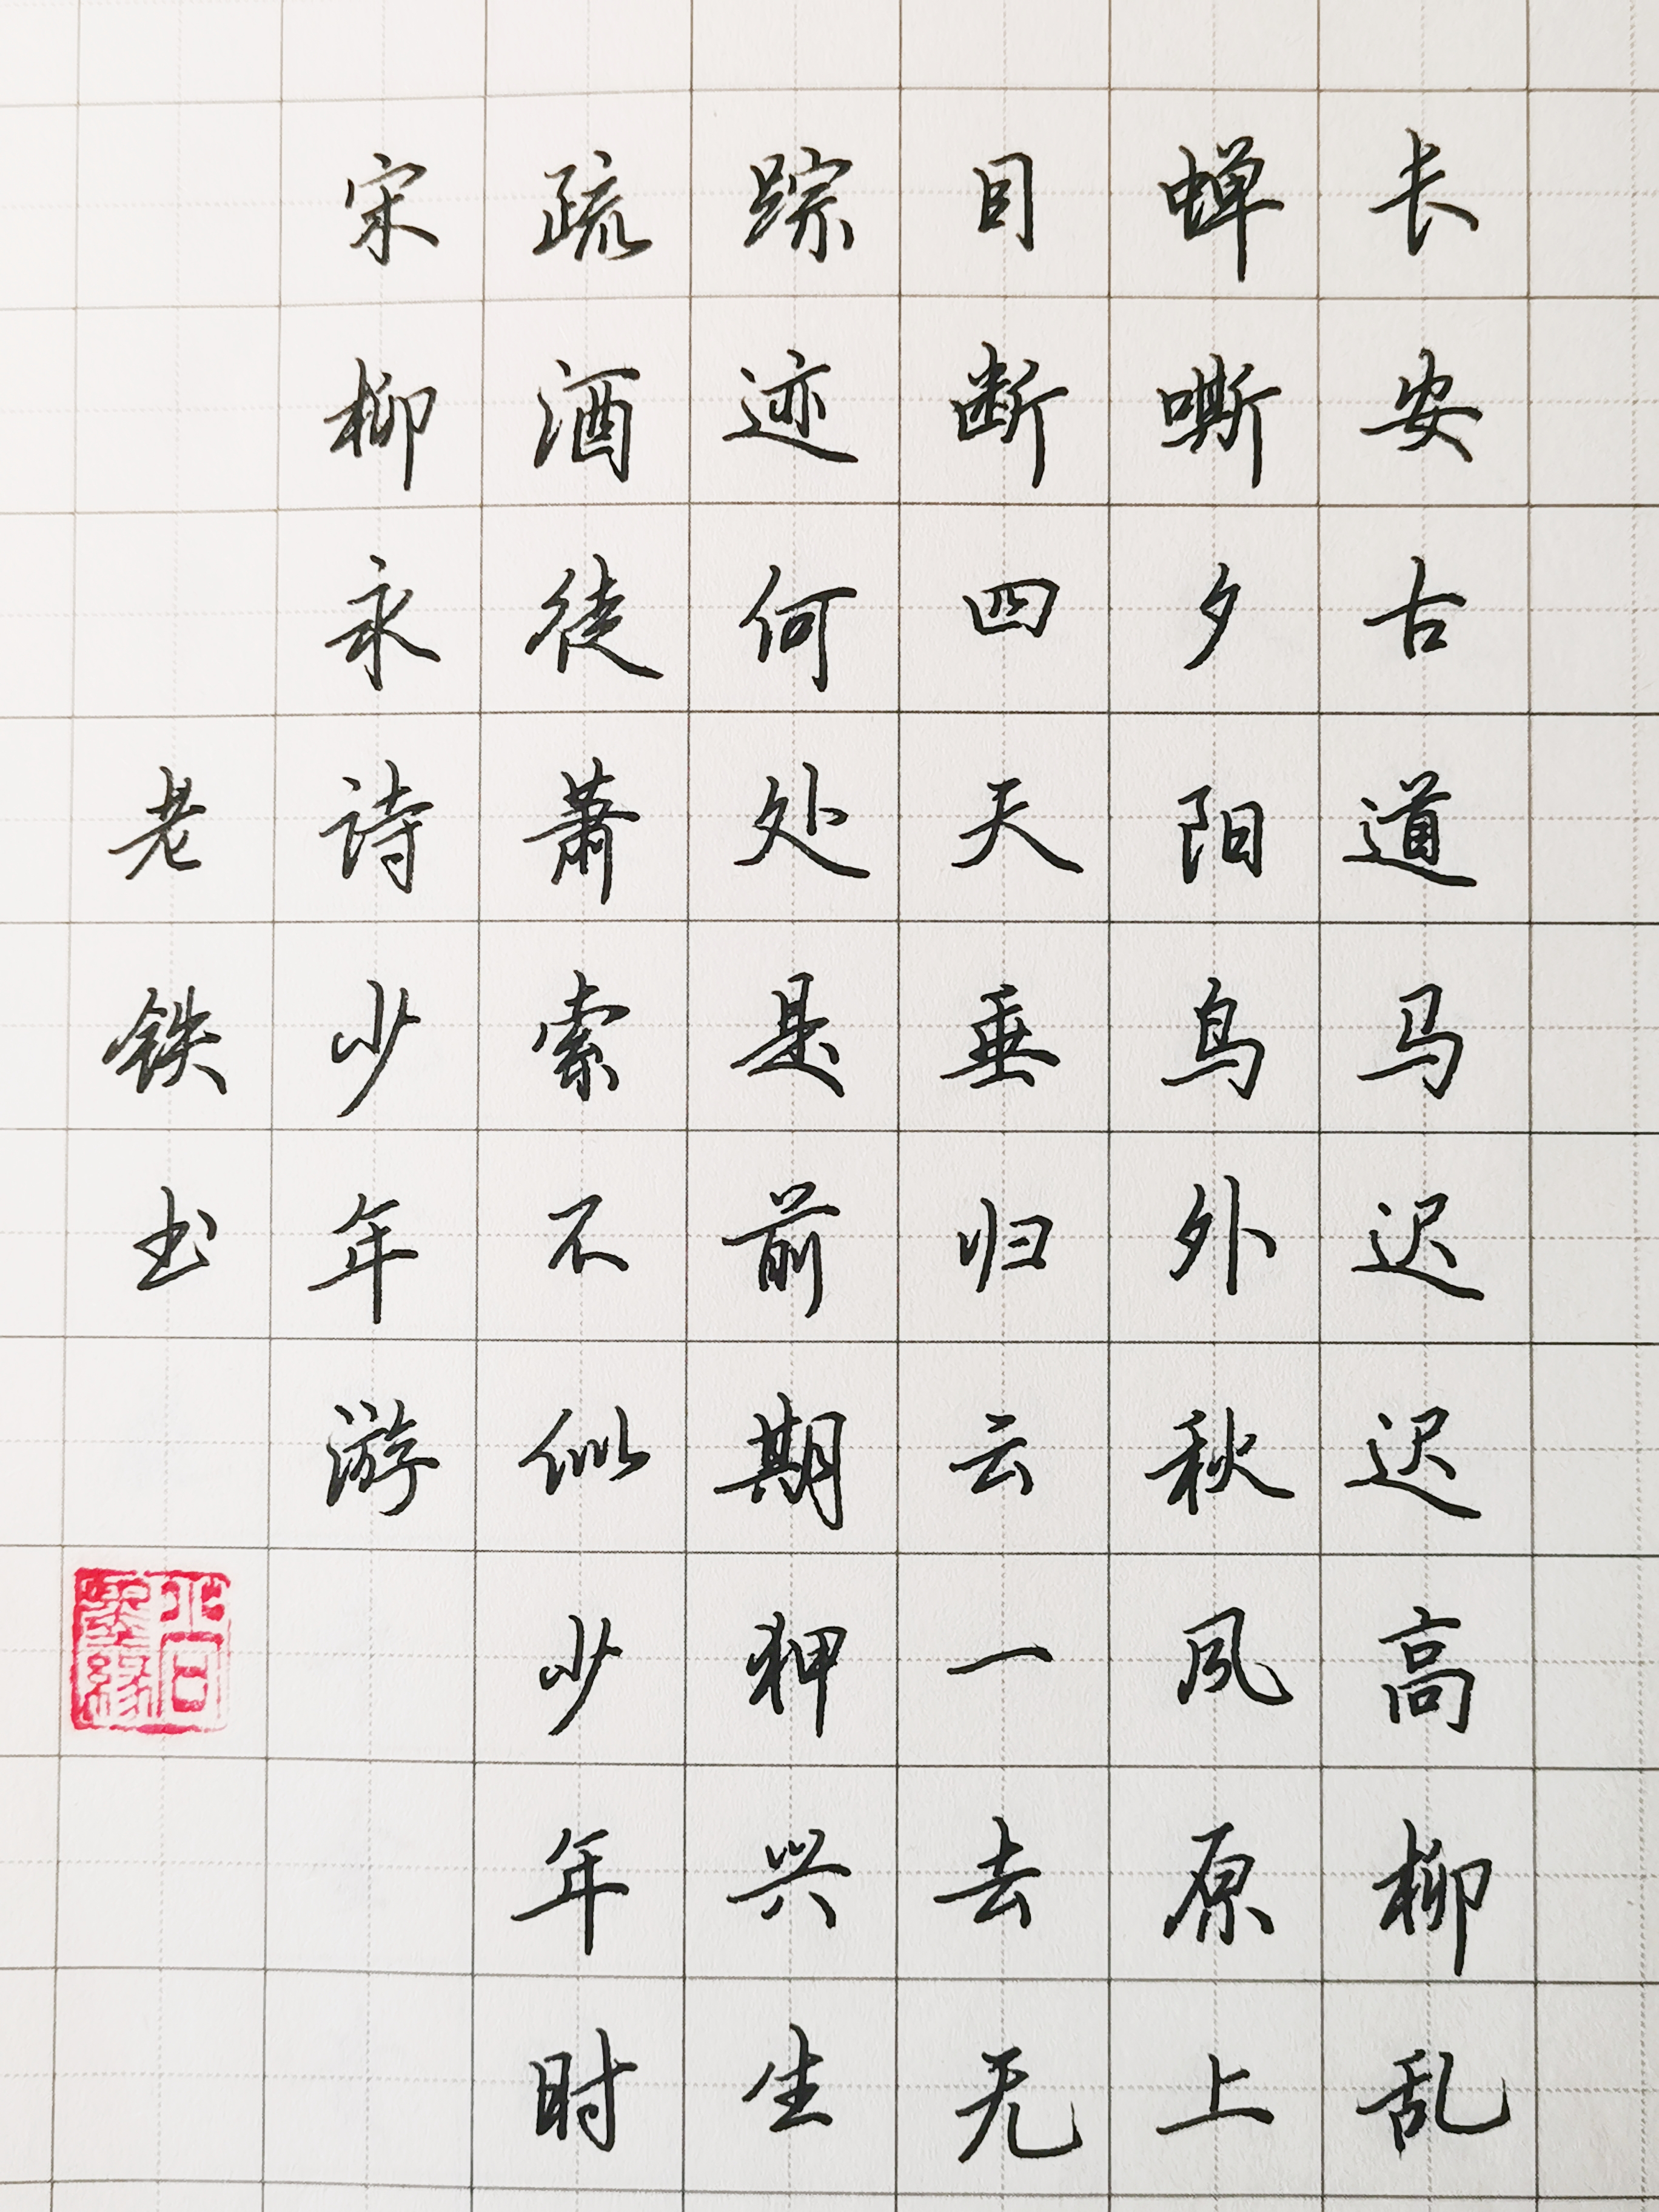 长安古道马迟迟高柳乱
蝉嘶夕阳鸟外秋风原上
目断四天垂归云一去无
踪迹何处是前期狎兴生
疏酒徒萧索不似少年时
宋柳永诗少年游
老铁书
半日墨缘